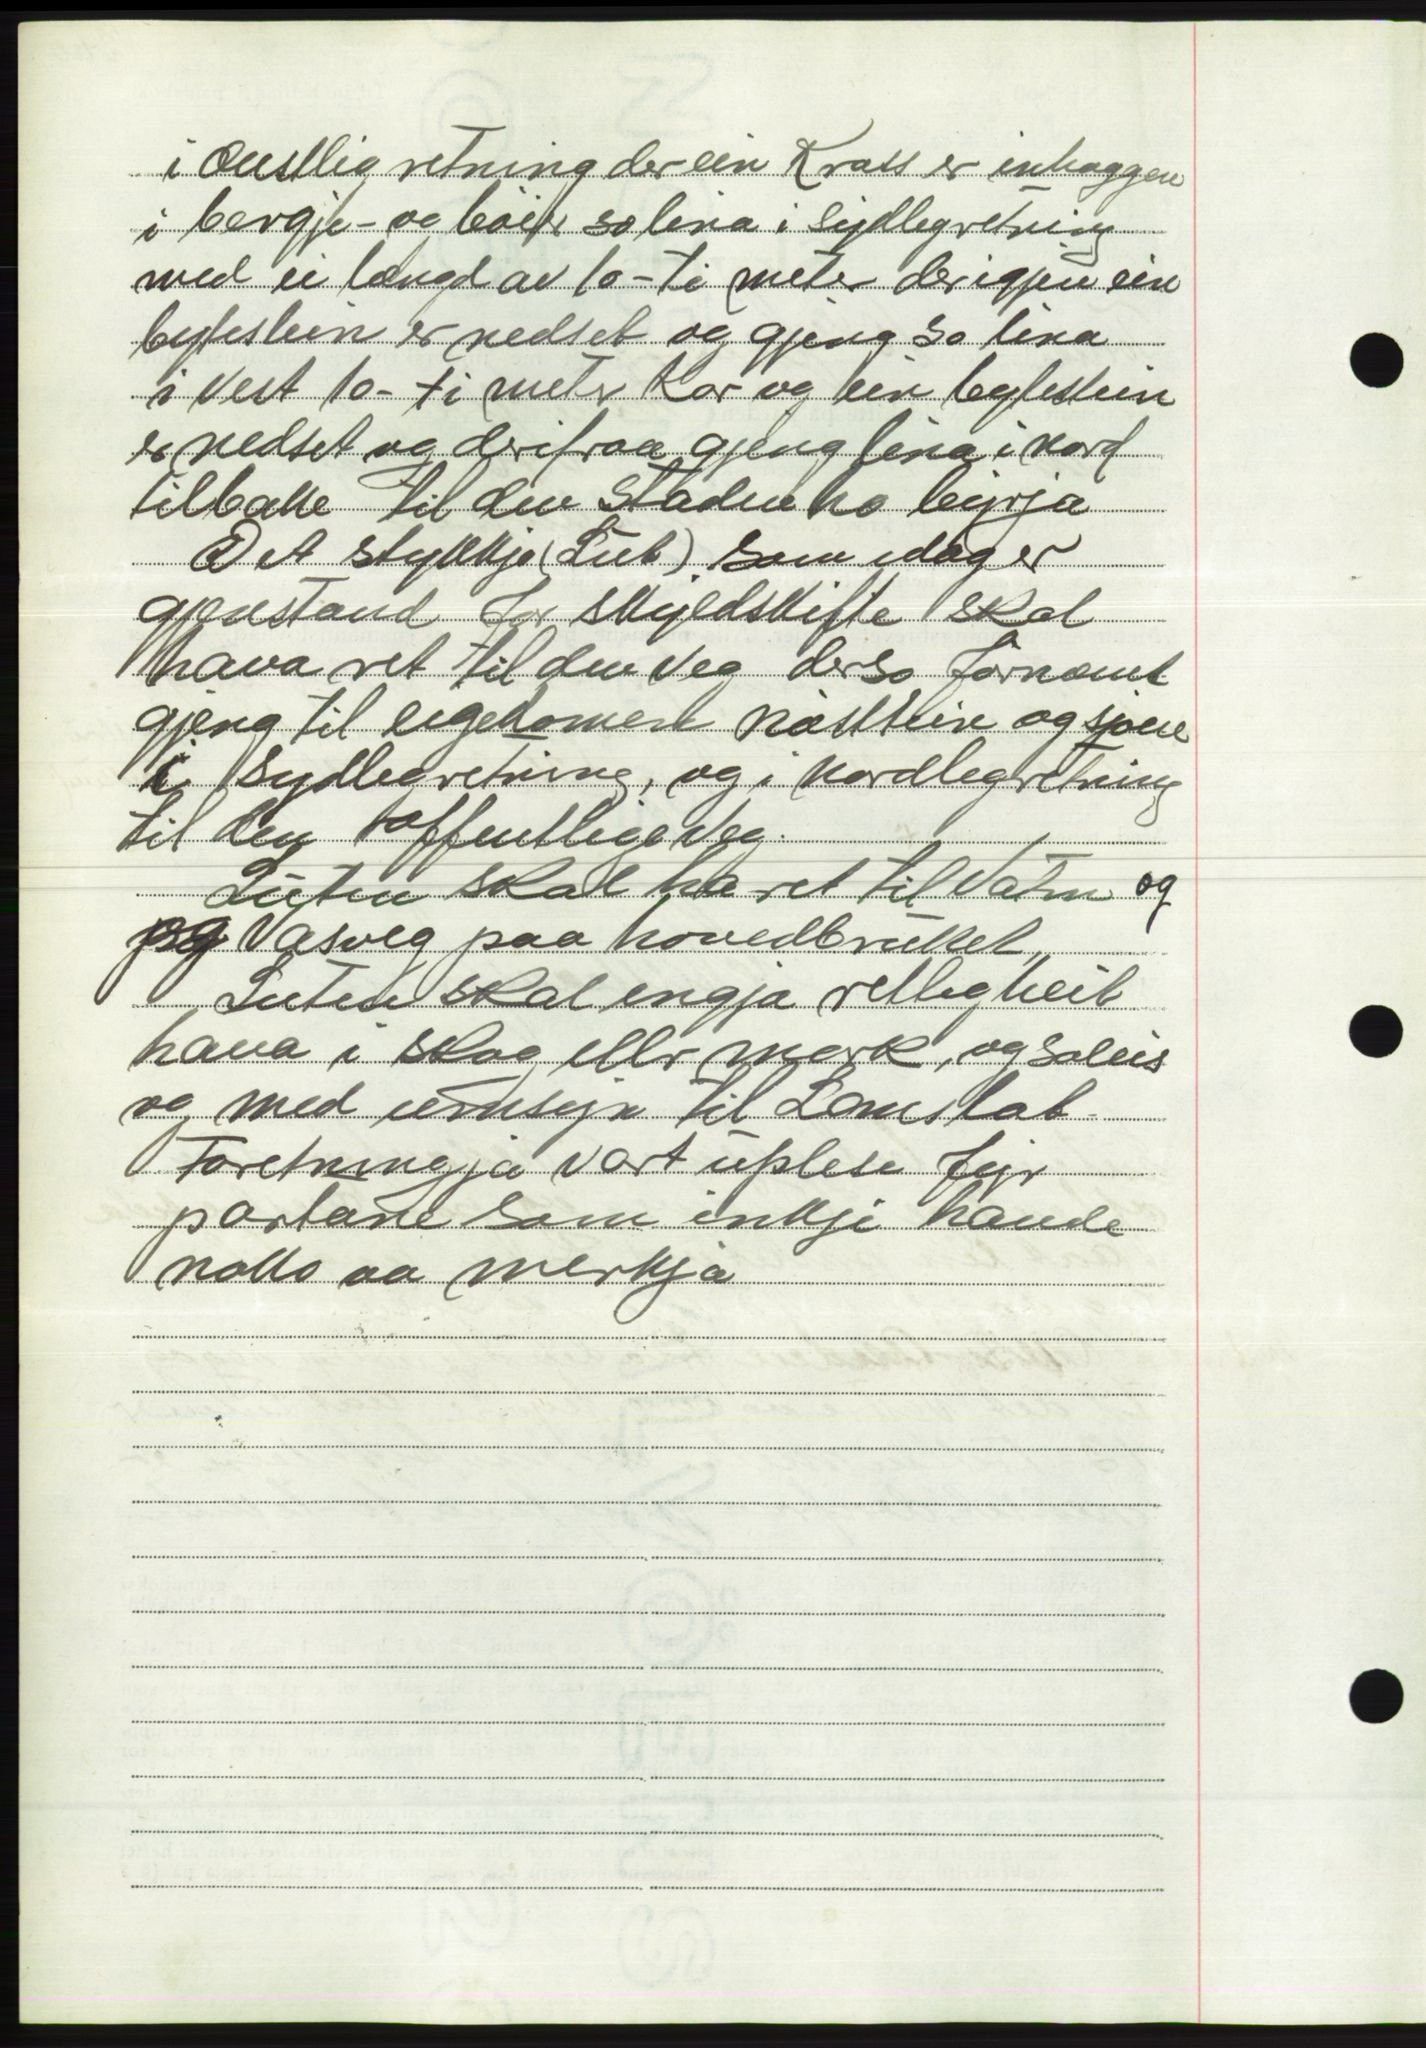 i Oustlig retning der ein Kross er inhoggen
i bergje - og böier so lina i Sydlegretning
med ei længd av 10 - ti meter der igjen ein
bytestein er nedset og gjeng so lina
i vest 10 - ti meter kor og ein bytestein
er nedset og derifraa gjeng lina i nord
tilbakke til den staden ho byrja
Det stykkje (Lut) som idag er
gjenstand for skyldskifte skal
hava ret til den veg der so fornemt
gjeng til eigekomen nausttein og sjöen
i Sydlegretning, og i nordlegretning
til den offentlige veg.
Luten skal ha ret til Vatn og
og Vasveg paa hovedbruket,
Luten skal engja retlegheit
hava i skog eller mark, og soleis
og med umsyn til Lamslåt
Foretningja vart uplese fyr
partane som inkje havde
nokko aa merkja